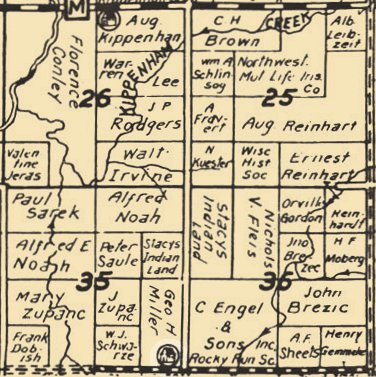 M
Aug.
Kippenhan
C H
Brown
CREEK
Alb.
Leib-
zeit
Florence
Conley
War-
ren
Lee
KIPPENHAN
Wm A
Schlin-
sog
Northwest.
Mut Life Ins.
Co
26
25
J P
Rodgers
A
Aug Reinhart
Valen
tine
Jeras
Walt.
Irvine
N
Kuester
Wisc
Hist
Soc
Ernest
Reinhart
Paul
Sarek
Alfred
Noah
Stacys
Indian
Land
Nicholas
V Fleis
Orville
Gordon
Rein-
hardt
Alfred E
Noah
Peter
Saule
Stacys
Indian
Land
Jno
Bre-
zec
H F
Moberg
35
36
Many
Zupanc
J
Zupa-
nc
Geo H
Miller
C Engel
&
Sons Inc.
Rocky Run Sc.
John
Brezic
Frank
Dob-
ish
W. J.
Schwa-
rze
A.F.
Sheets
Henry